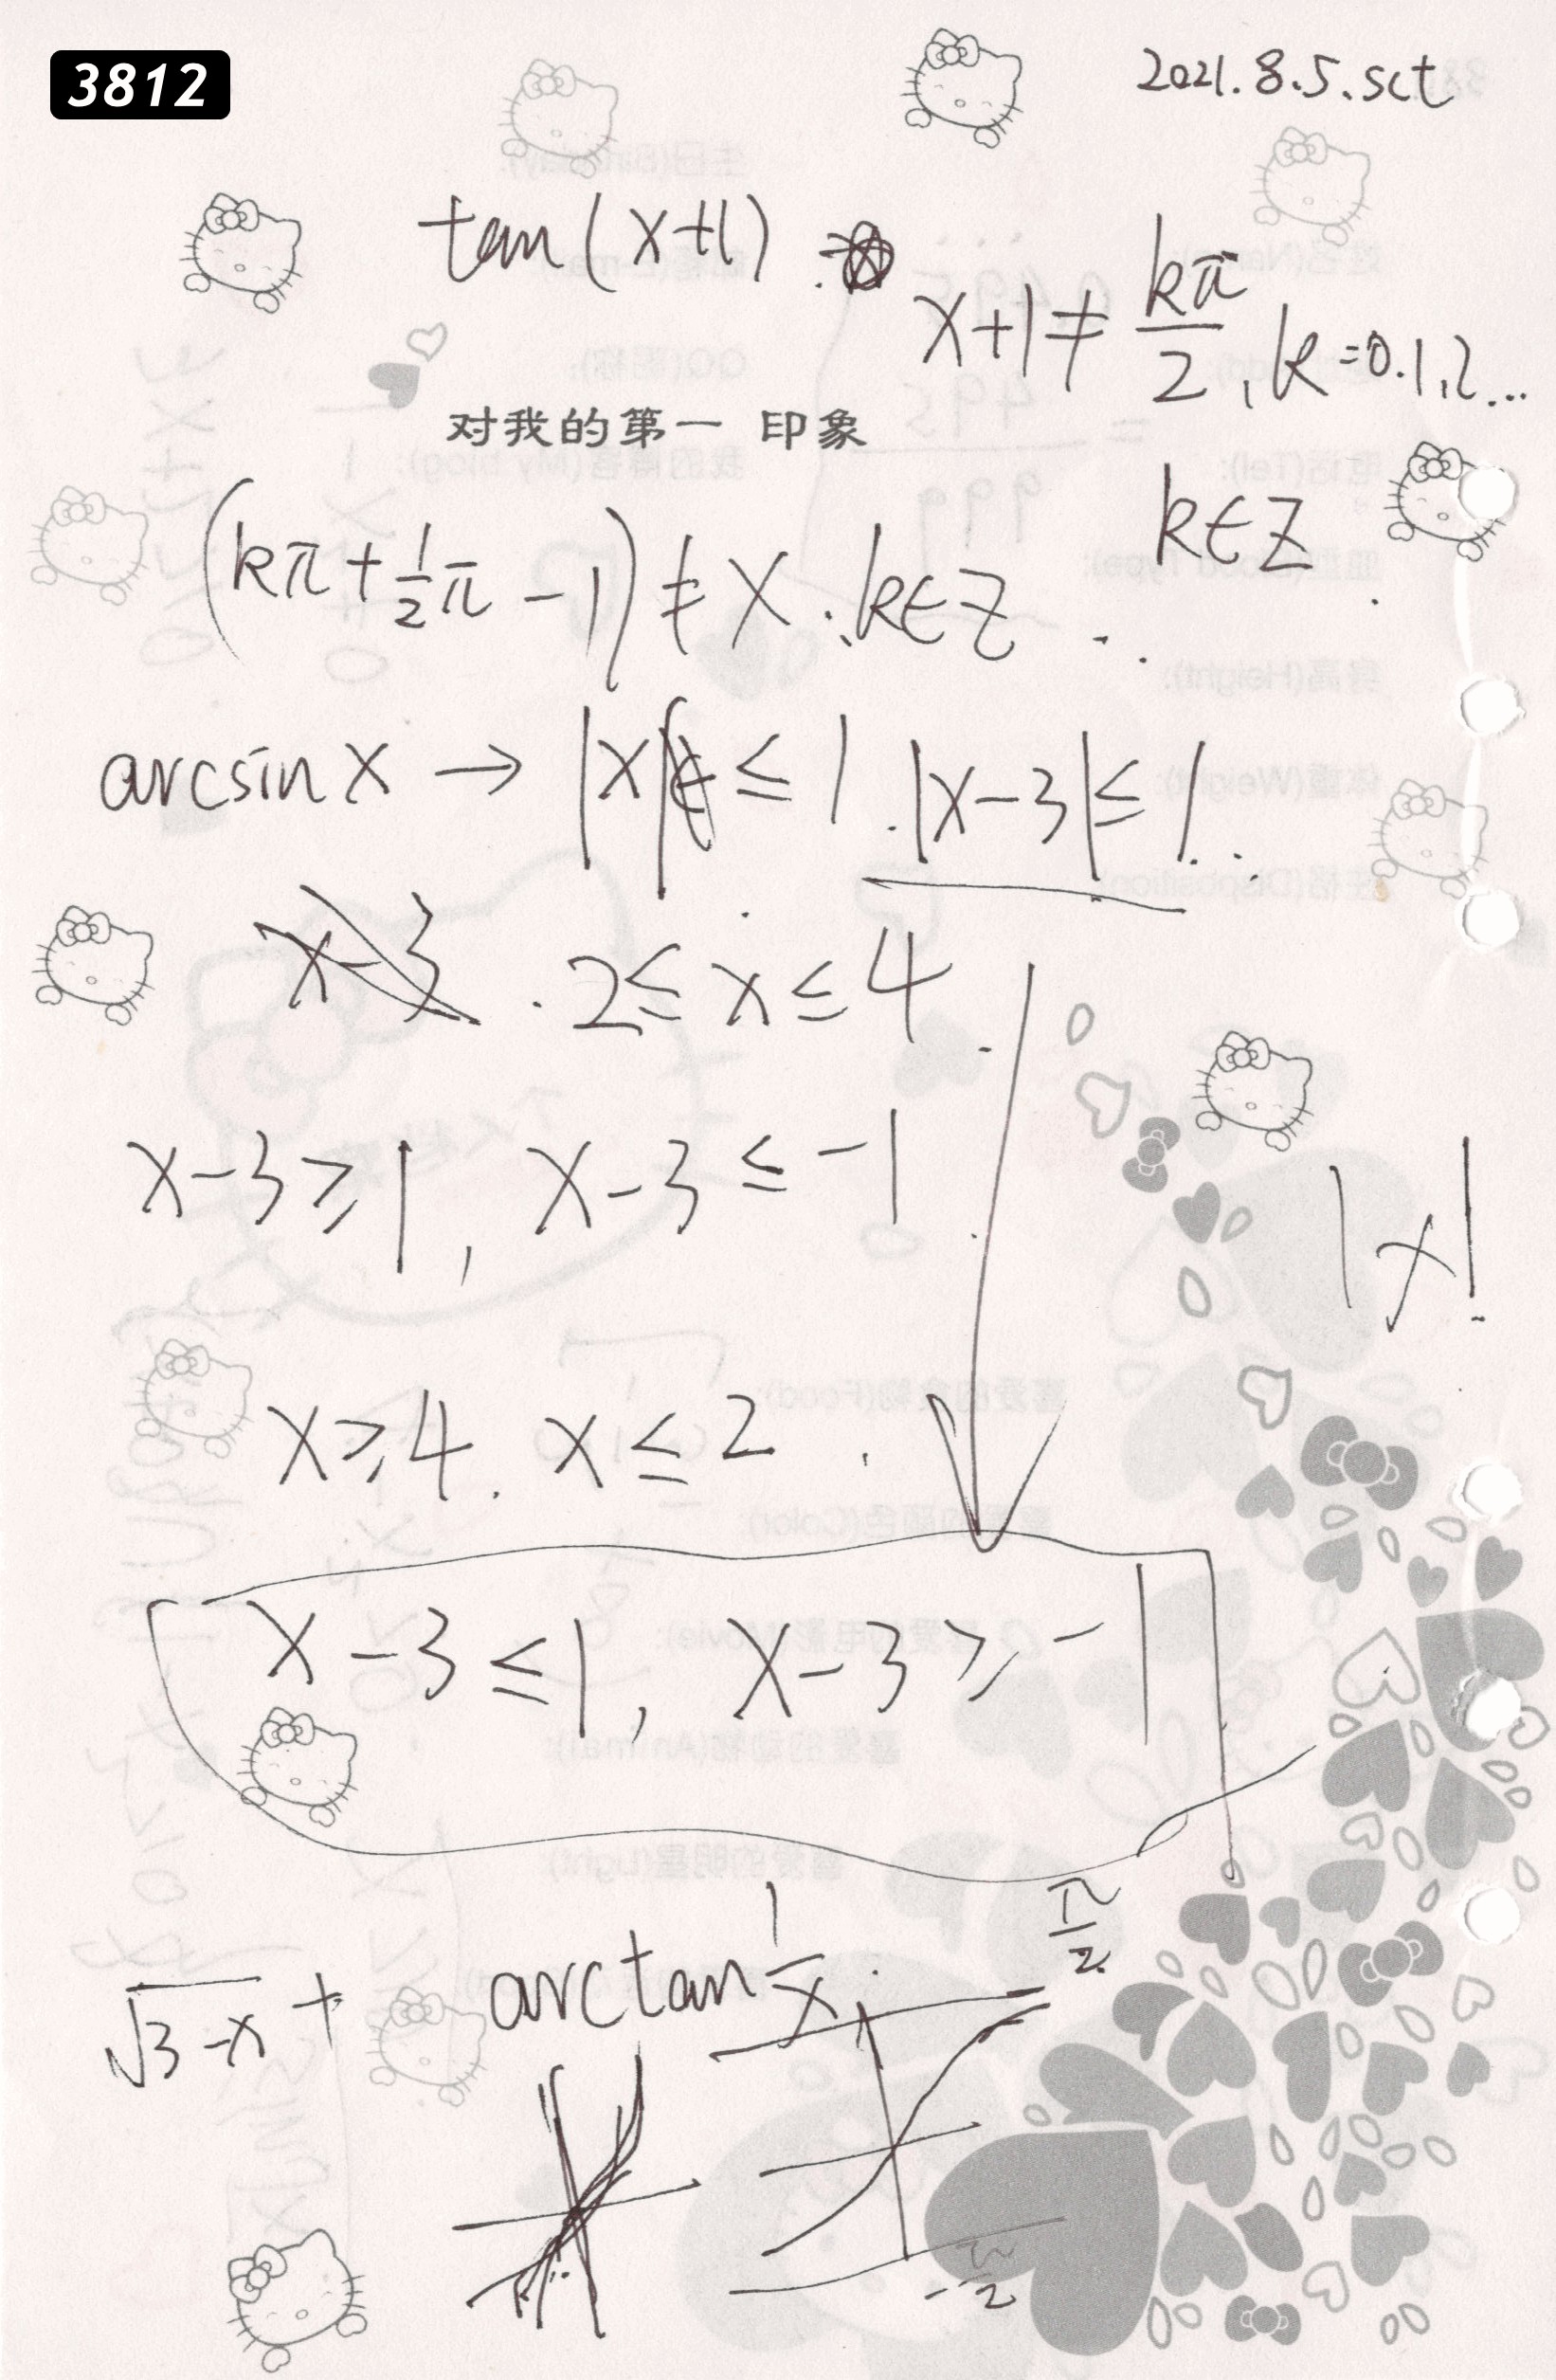 3812
2021.8.5.sct
tan(x+1)
x+1≠kπ/2, k=0.1,2...
对我的第一 印象
k∈Z
(kπ+1/2π-1)≠x.k∈Z
arcsinx→|x|≤1.|x-3|≤1.
x-3 .2≤x≤4.
x-3≥1, x-3≤-1
|x|
x≥4. x≤2.
x-3≤1, x-3≥-1
√3-x + arctan1/x.
π/2
-π/2